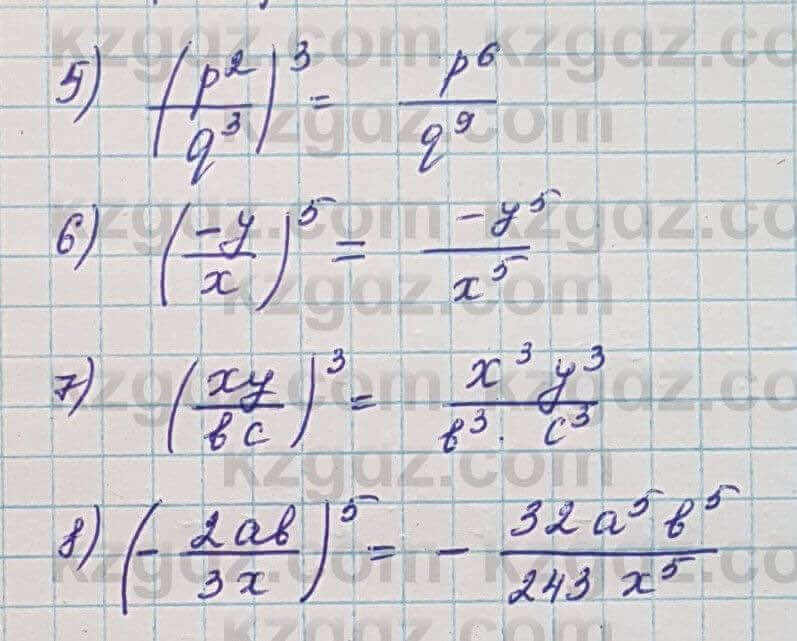 5) (p²/q³)³ = p⁶/q⁹
6) (-y/x)⁵ = -y⁵/x⁵
7) (xy/bc)³ = x³y³/b³·c³
8) (-2ab/3x)⁵ = -32a⁵b⁵/243x⁵
kzgdz.com